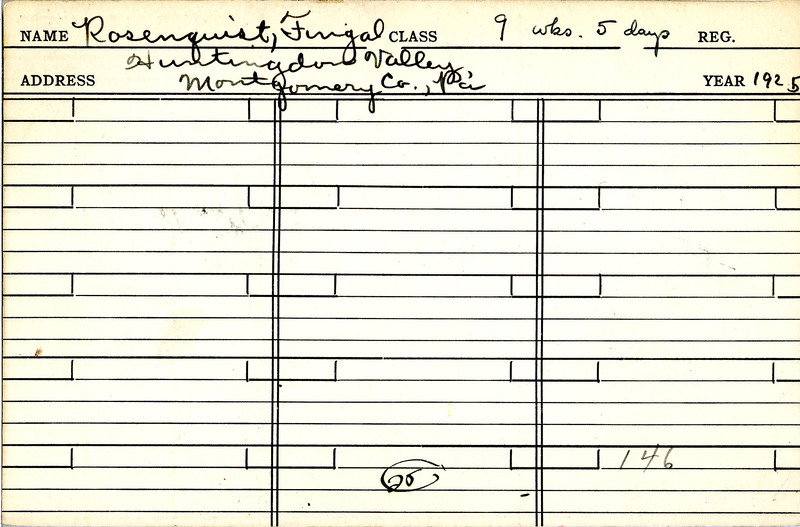 NAME Rosenquist, Fingal CLASS 9 wks. 5 days REG.
Huntingdon Valley
ADDRESS Montgomery Co., Pa YEAR 1925
146